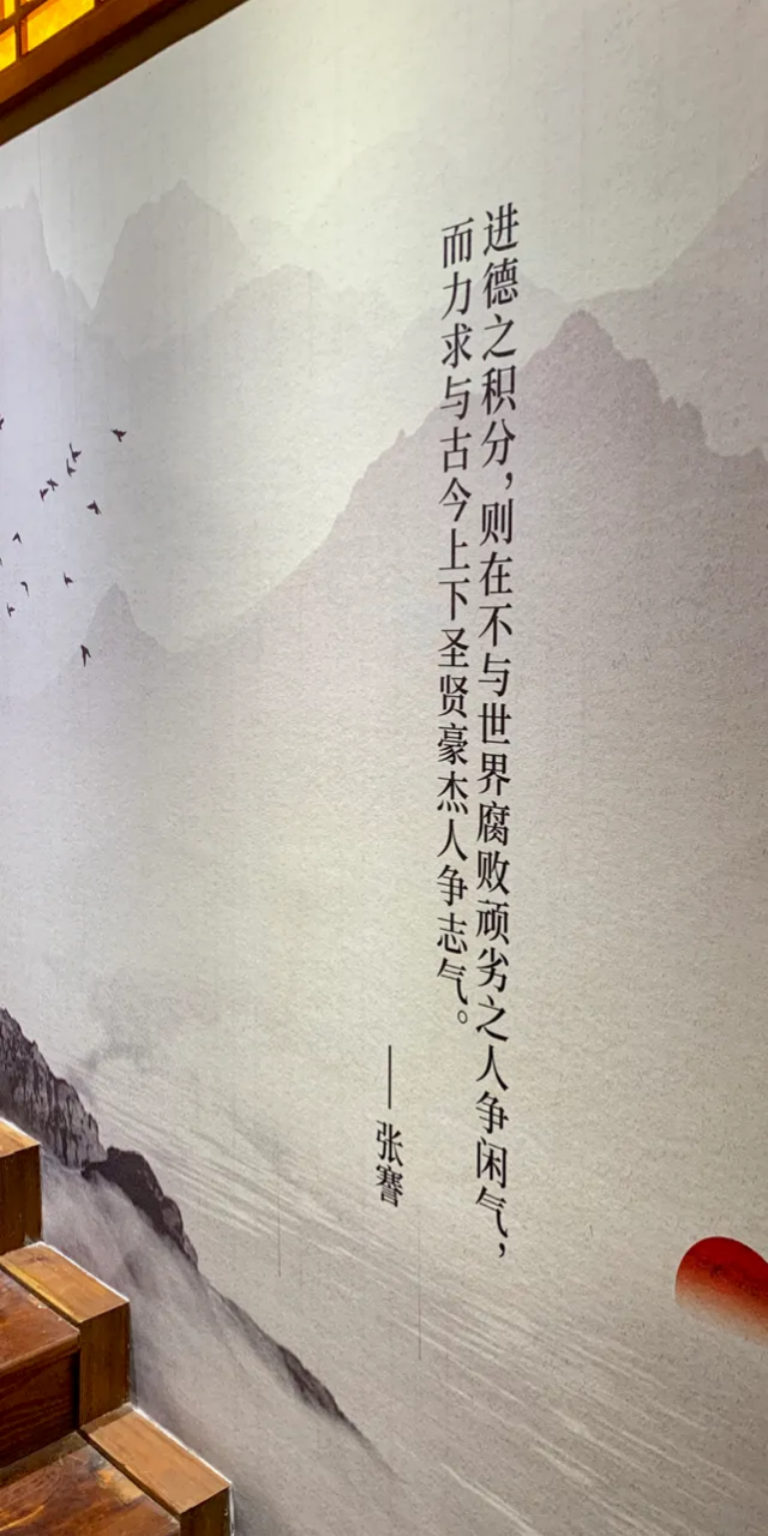 进德之积分，则在不与世界腐败顽劣之人争闲气，
而力求与古今上下圣贤豪杰人争志气。
——张謇